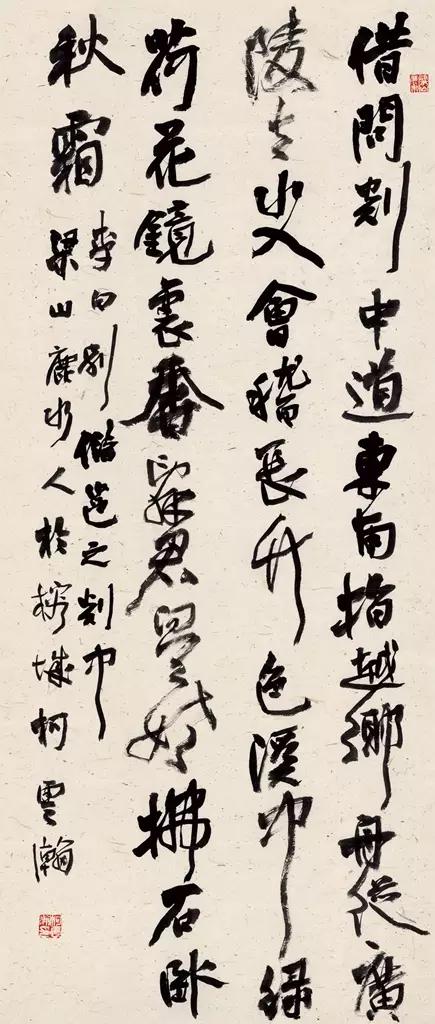 借問剡中道東南指越鄉舟從廣
陵去水入會稽長竹色溪下綠
荷花鏡裏香辭君向天姥拂石臥
秋霜
李白別儲邕之剡中
梁山鹿水人於榕城柯雲瀚